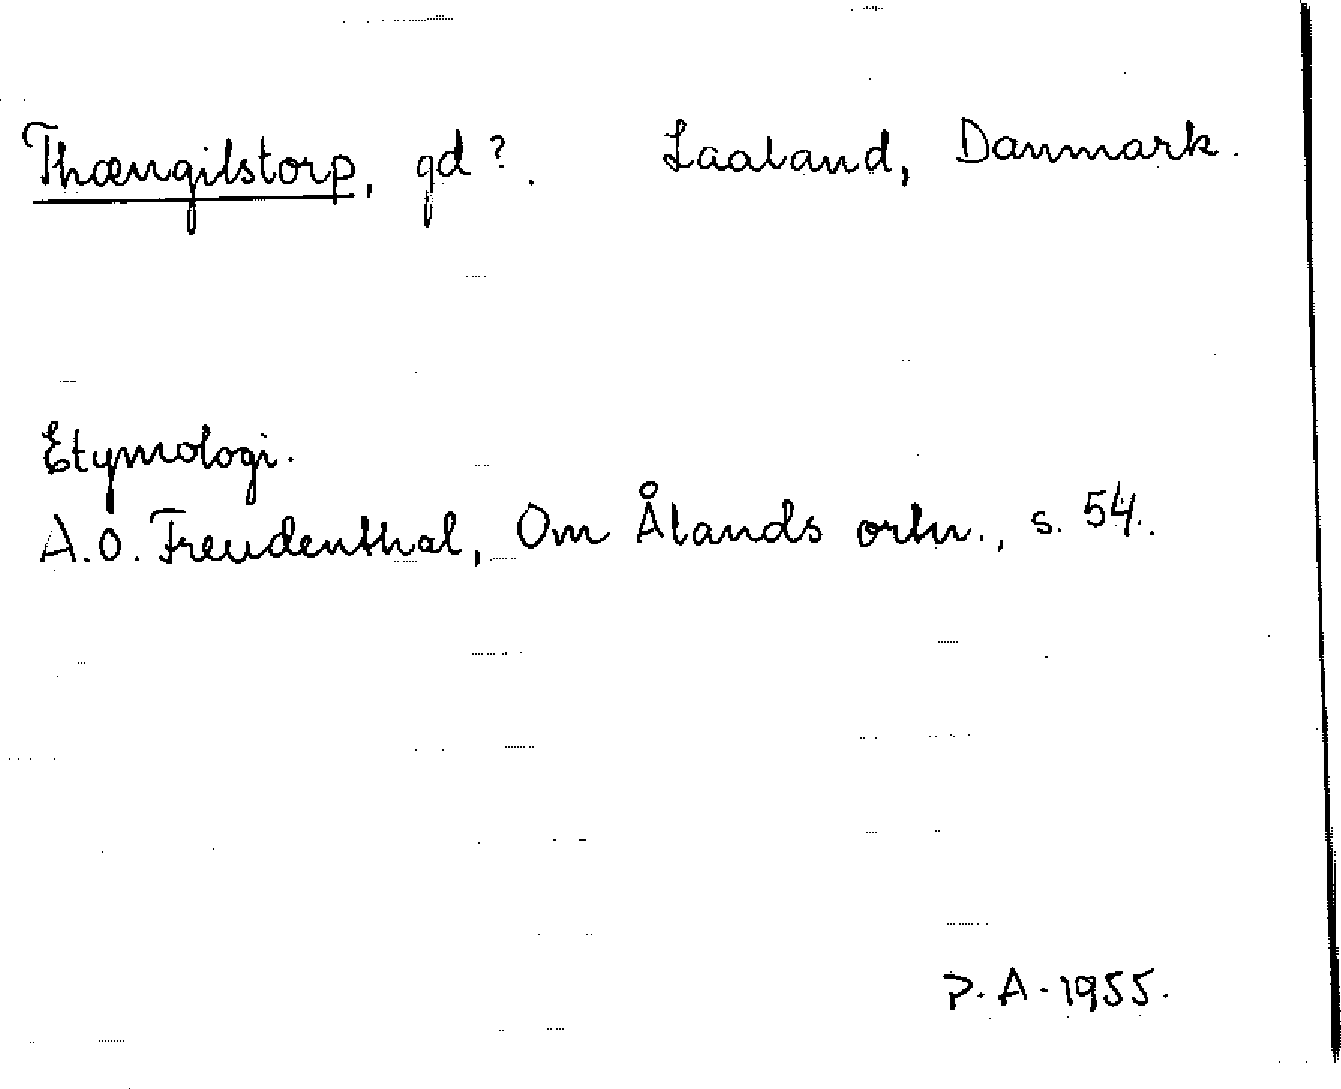 Thængilstorp, gd?. Laaland, Danmark.
Etymologi.
A.O. Freudenthal, Om Ålands ortn., s. 54.
P.A. 1955.